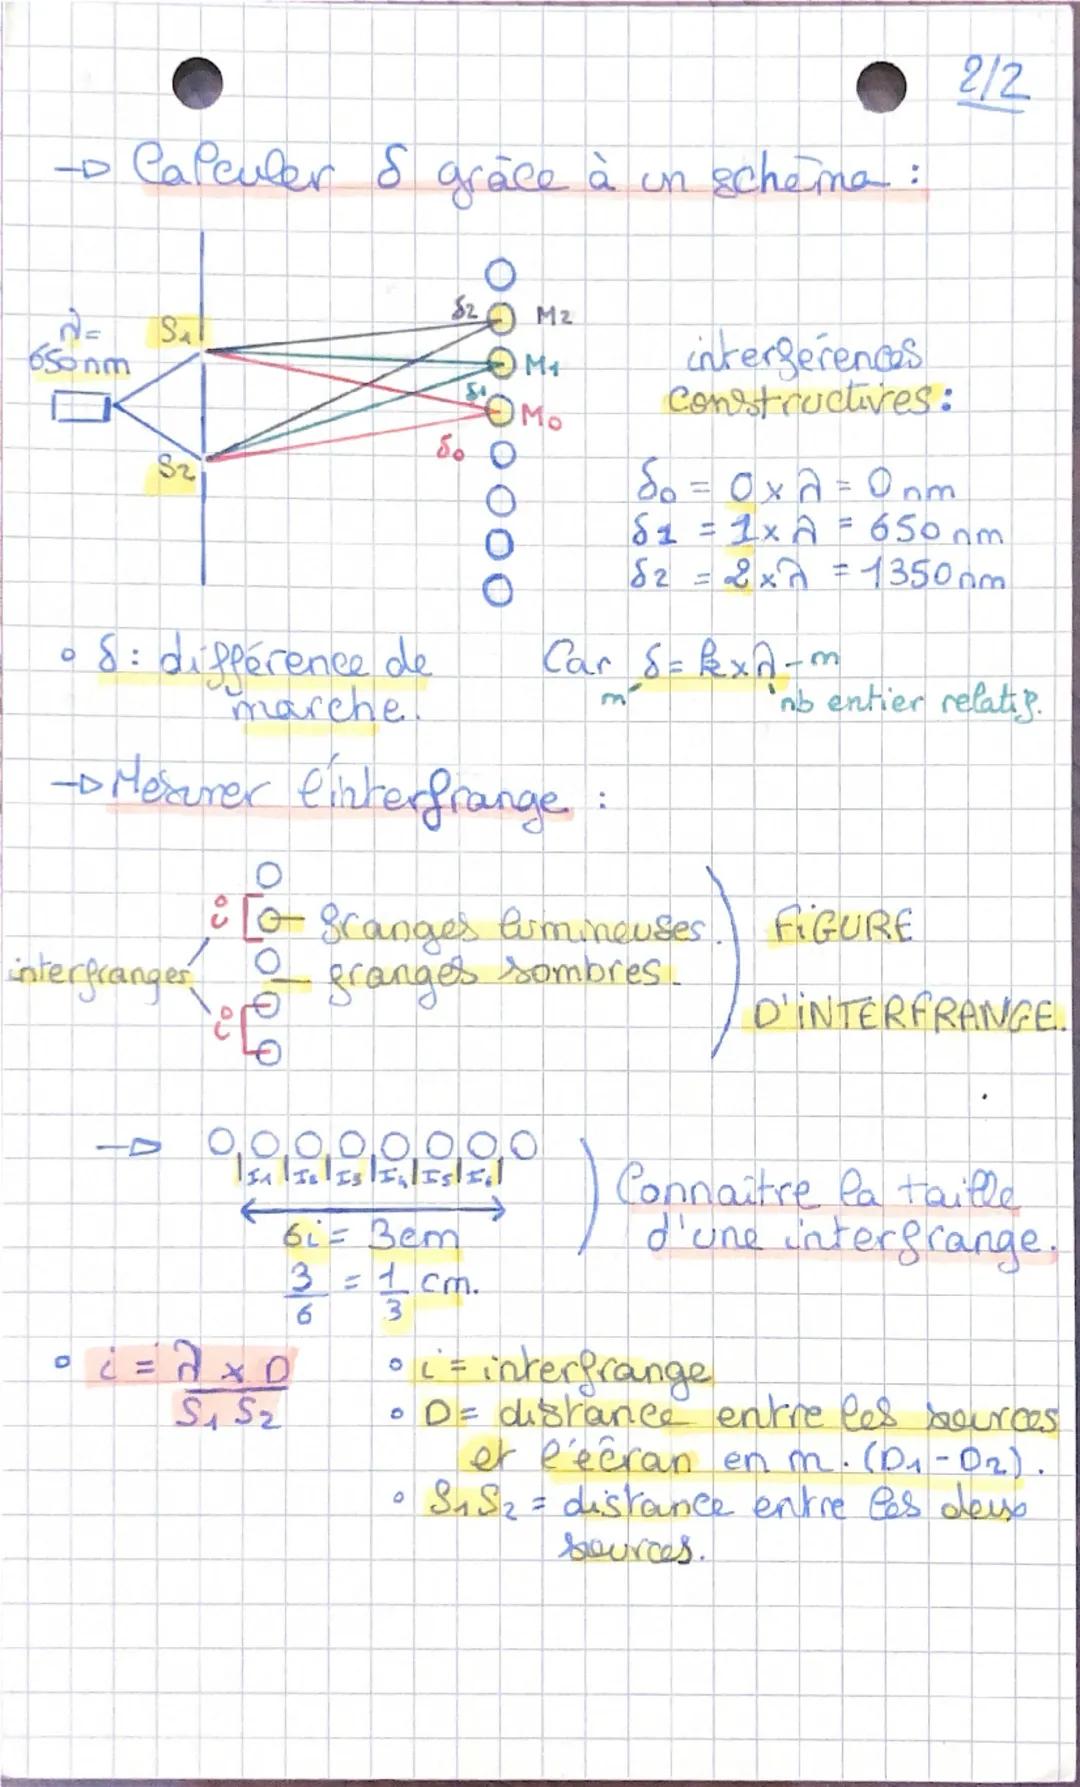 2/2
→ Calculer δ grâce à un schéma :
λ =
650nm
S1
S2
δ2 M2
M1
δ1
M0
δ0
interférences
constructives :
δ0 = 0 x λ = 0 nm
δ1 = 1 x λ = 650 nm
δ2 = 2 x λ = 1350 nm
• δ : différence de
marche.
Car δ = k x λ - m
m nb entier relatif.
→ Mesurer l'interfrange :
i
franges lumineuses.
interfranges
franges sombres.
i
FiGURE
D'iNTERFRANGE.
→
I1 I2 I3 I4 I5 I6
6i = 3cm
3/6 = 1/3 cm.
Connaître la taille
d'une interfrange.
• i = λ x D / S1 S2
• i = interfrange
• D = distance entre les sources
et l'écran en m. (D1 - D2).
• S1S2 = distance entre les deux
sources.